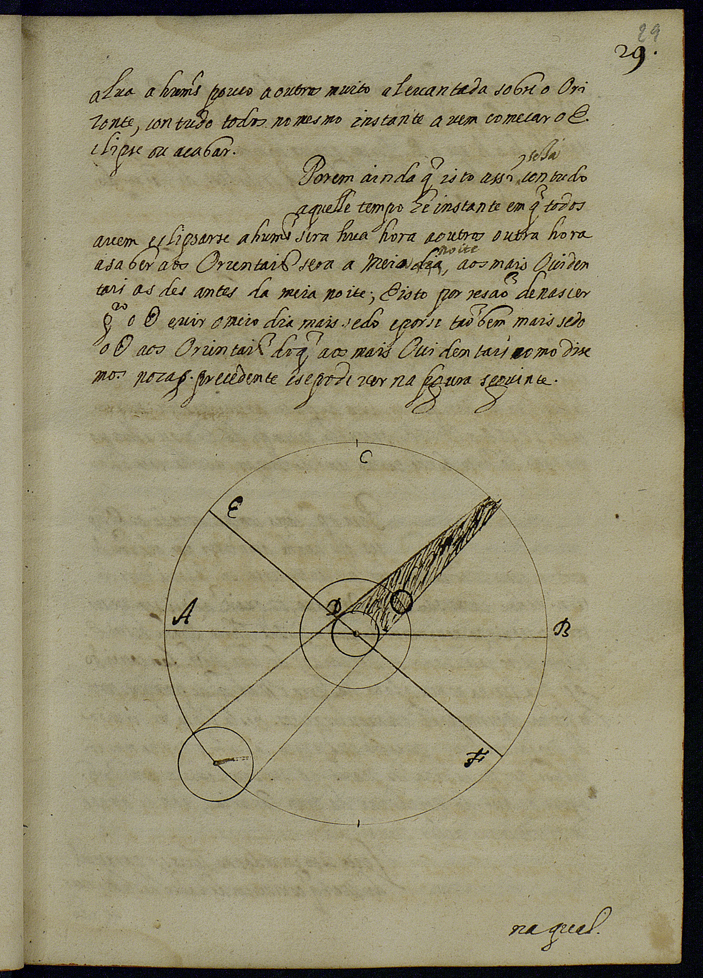 29
29.
a lua a huns pouco a outros muito alevantada sobre o Ori
zonte, con tudo todos no mesmo instante a vem começar o E
clipse ou acabar.
Porem ainda q̃ isto assi seia con tudo
aquelle tempo he instante em q̃ todos
a vem eclipsarse a huns sera hũa hora a outros outra hora
a saber aos Orientais sera a meia noite, aos mais Ociden
tais as des antes da meia noite; E isto por resaõ de nascer
o ☉ e vir o meio dia mais sedo e porse taõbem mais sedo
o ☉ aos Orientais do q̃ aos mais Ocidentais como dise
mos precedente e se pode ver na figura seguinte.
C
E
D
A
B
F
na qual.